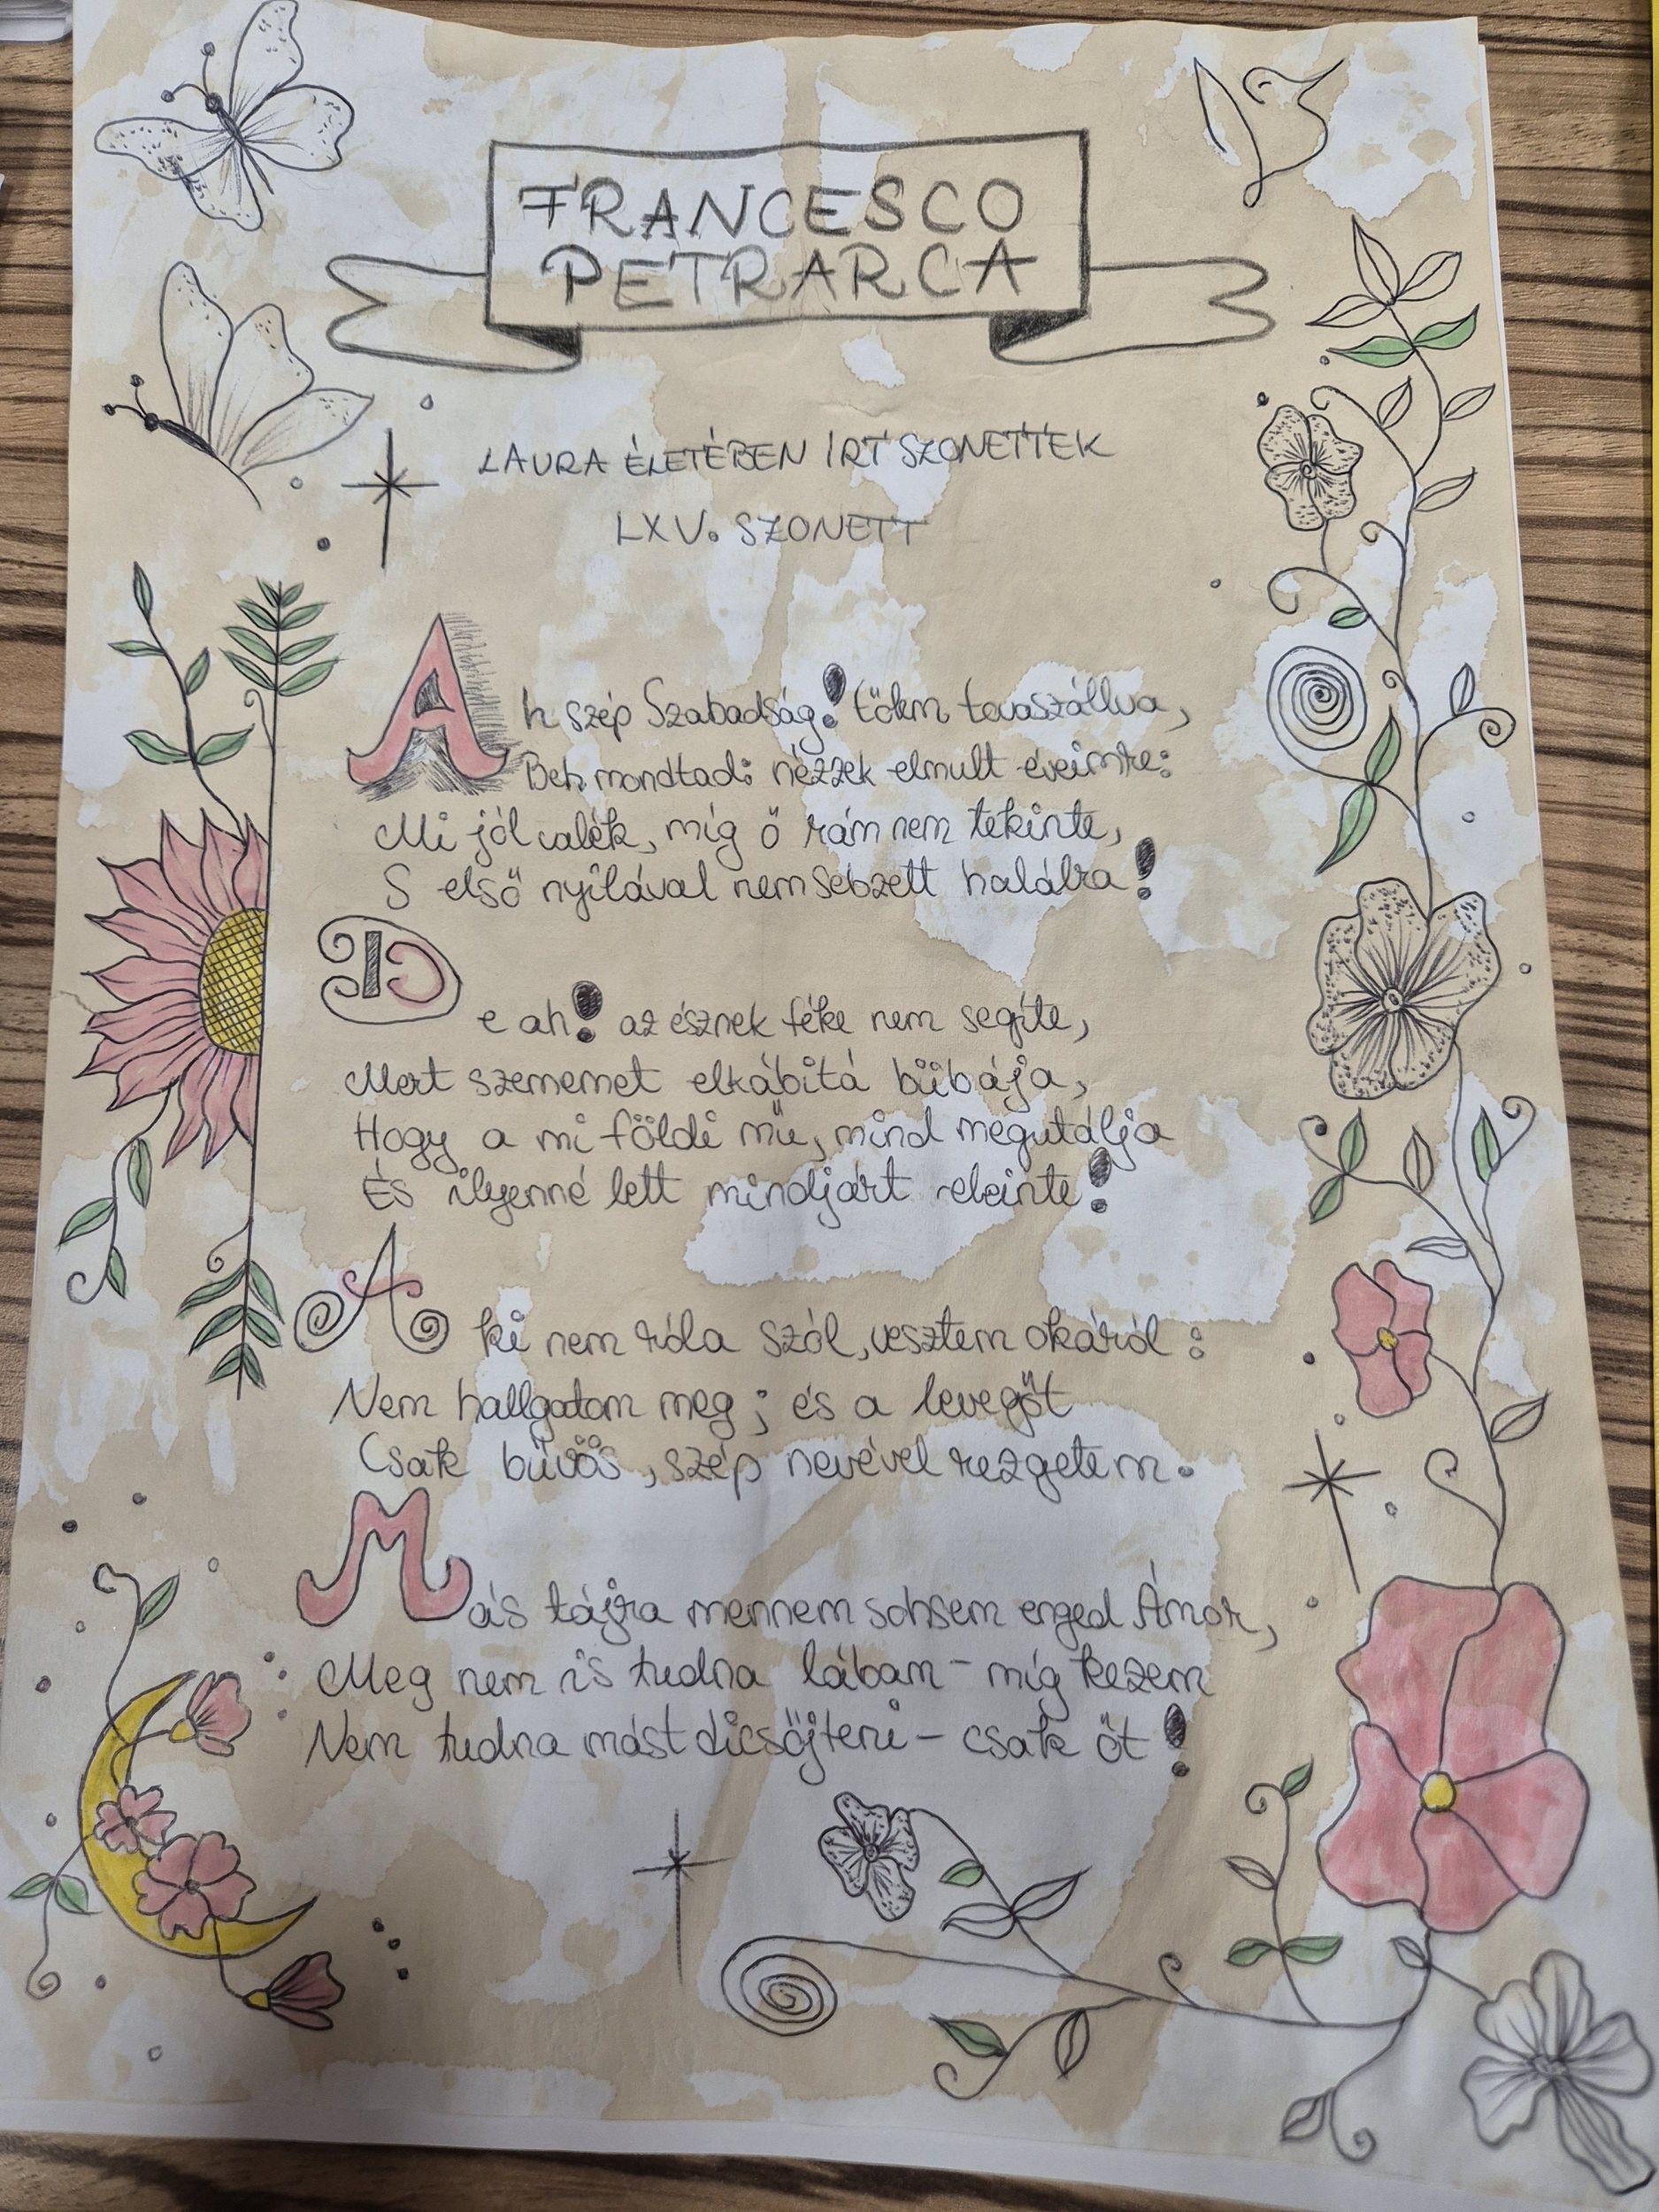 FRANCESCO
PETRARCA
LAURA ÉLETÉBEN IRT SZONETTEK
LXV. SZONETT
Ah szép Szabadság! tőlem tovaszállva,
Beh mondtad: nézzek elmult éveimre:
Mi jól valék, míg ő rám nem tekinte,
S első nyilával nem sebzett halálra!
De ah! az észnek féke nem segíte,
Mert szememet elkábitá bübája,
Hogy a mi földi mü, mind megutálja
És ilyenné lett mindjárt eleinte!
Aki nem róla szól, vesztem okáról:
Nem hallgatom meg; és a levegőt
Csak büvös, szép nevével rezgetem.
Más tájra mennem sohsem enged Ámor,
Meg nem is tudna lábam - míg kezem
Nem tudna mást dicsőjteni - csak őt!